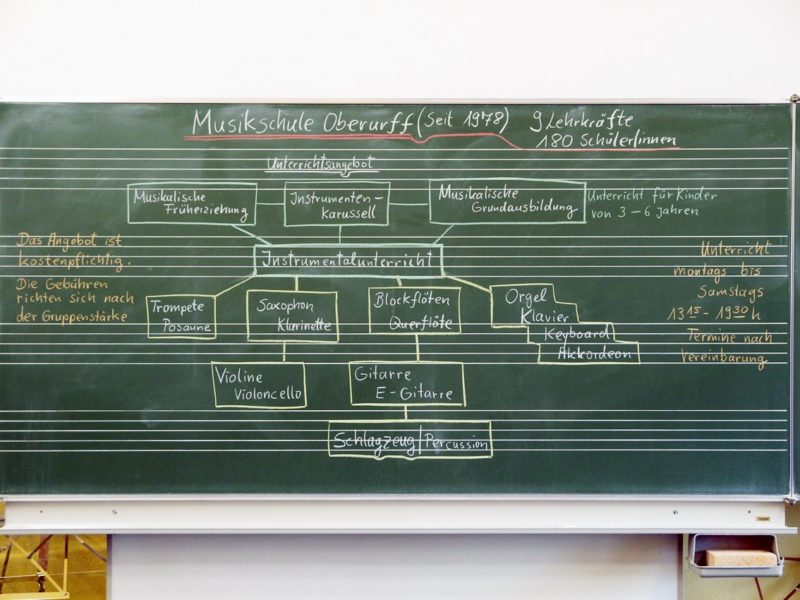 Musikschule Oberurff (Seit 1978) 9 Lehrkräfte
180 Schüler/innen
Unterrichtsangebot
Musikalische
Früherziehung
Instrumenten-
karussell
Musikalische
Grundausbildung
Unterricht für Kinder
von 3-6 Jahren
Instrumentalunterricht
Das Angebot ist
kostenpflichtig.
Die Gebühren
richten sich nach
der Gruppenstärke
Trompete
Posaune
Saxophon
Klarinette
Blockflöten
Querflöte
Orgel
Klavier
Keyboard
Akkordeon
Unterricht
montags bis
Samstags
13 15 - 19 30 h
Termine nach
Vereinbarung
Violine
Violoncello
Gitarre
E-Gitarre
Schlagzeug/Percussion